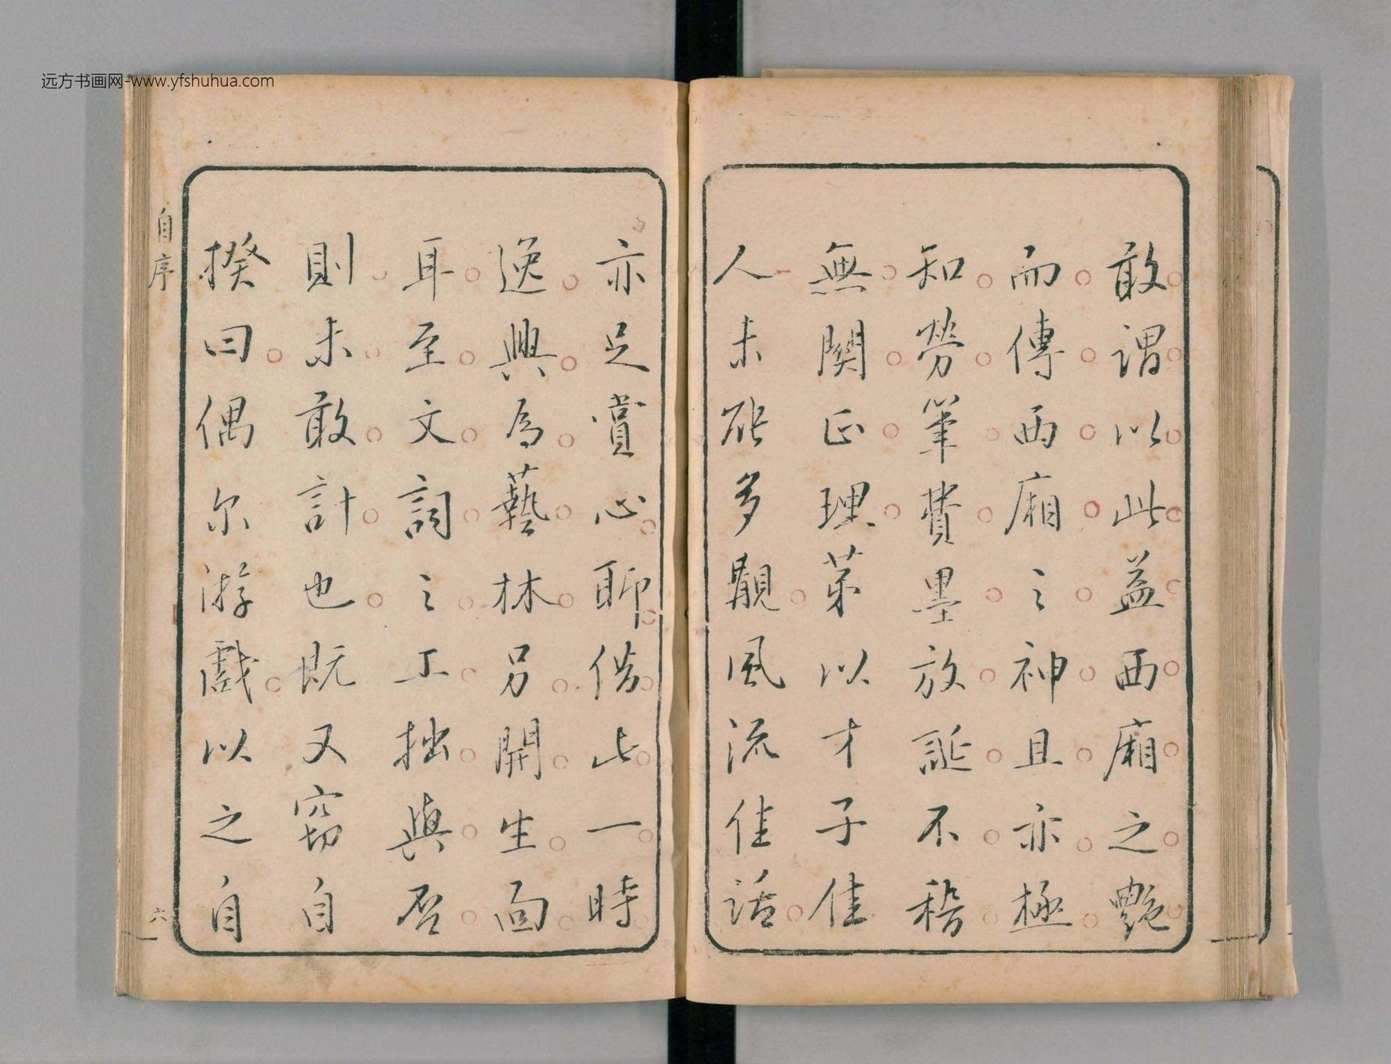 远方书画网-www.yfshuhua.com
敢謂以此益西廂之艷
而傳西廂之神且亦極
知勞筆費墨放誕不稽
無関正理苐以才子佳
人未能多覯風流佳話
亦足賞心聊借此一時
逸興為藝林另開生面
耳至文詞之工拙與否
則未敢計也既又竊自
揆曰偶尔游戲以之自
自序
六